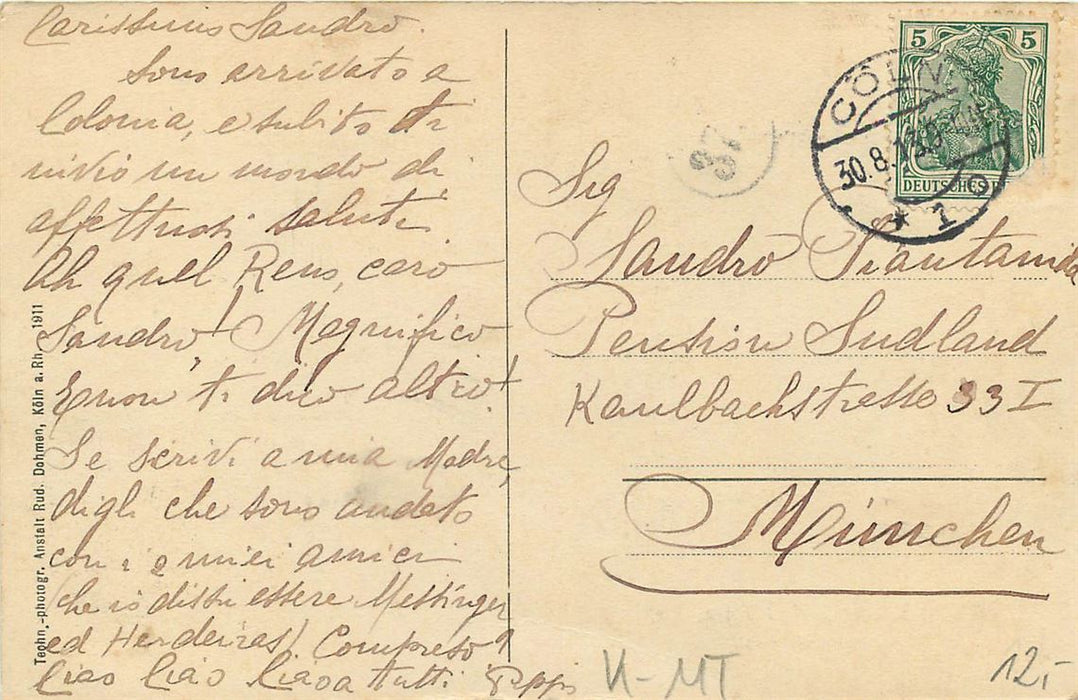 Carissimo Sandro.
Sono arrivato a
Colonia, e subito ti
invio un mondo di
affettuosi saluti.
Ah quel Reno, caro
Sandro! Magnifico
E non ti dico altro!
Se scrivi a mia Madre,
digli che sono andato
con i 2 miei amici
che io dissi essere Messinger
ed Herdeiras! Compreso?
Ciao Ciao Ciao a tutti Peppi
Techn.-photogr. Anstalt Rud. Dohmen, Köln a. Rh. 1911
5 5
DEUTSCHES
CÖLN
30.8.13
* 1
37
Sig
Sandro Piantanida
Pension Sudland
Kaulbachstrasse 33 I
München
K-MT
12,-